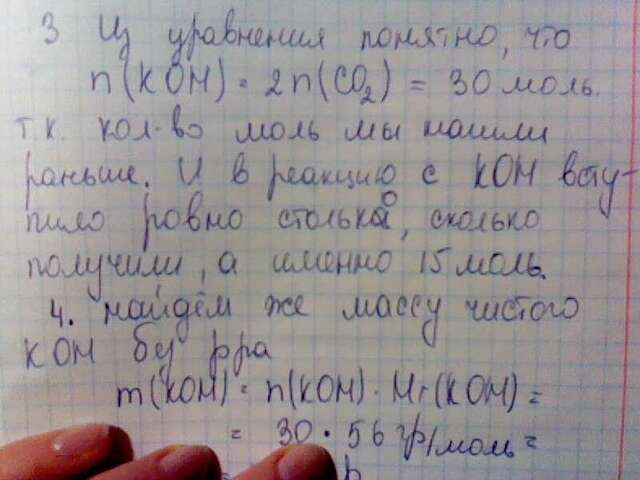 3 Из уравнения понятно, что
n(KOH) = 2n(CO₂) = 30 моль.
т.к. кол-во моль мы нашли
раньше. И в реакцию с KOH всту-
пило ровно столько, сколько
получили, а именно 15 моль.
4. Найдём же массу чистого
KOH без р-ра
m(KOH) = n(KOH) · Mr(KOH) =
= 30 · 56 гр/моль =